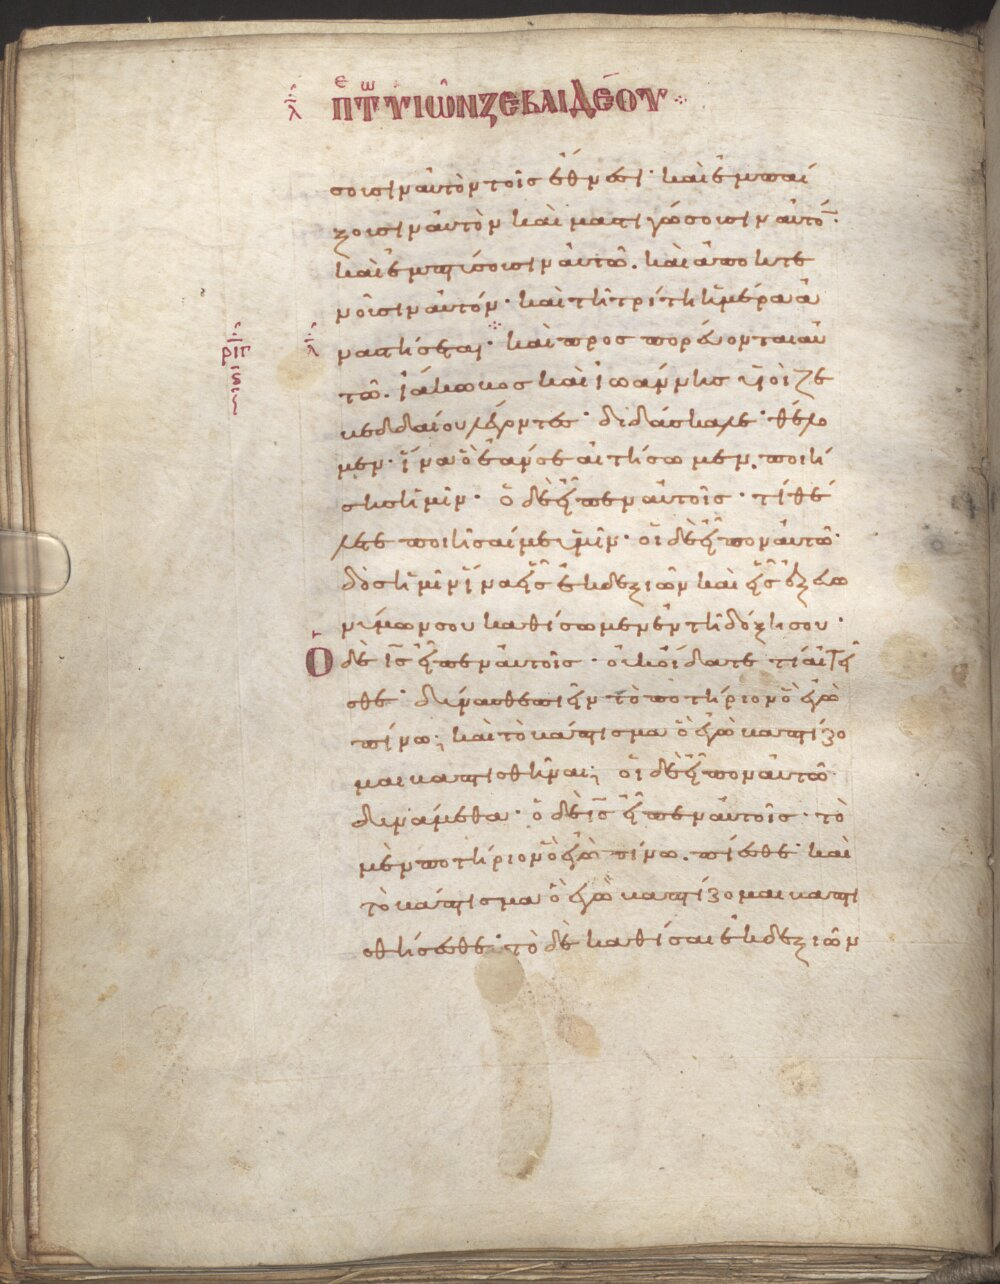 λ ΠΕΡΙ ΤΩΝ ΥΙΩΝ ΖΕΒΑΙΔΕΟΥ
σουσιν αὐτὸν τοῖς ἔθνεσι· καὶ ἐμπαί
ξουσιν αὐτὸν καὶ μαστιγώσουσιν αὐτὸ̅·
καὶ ἐμπτύσουσιν αὐτῶ. καὶ ἀποκτε
νοῦσιν αὐτόν· καὶ τῆ τρίτη ἡμέρα ἀ
ναστήσεται· καὶ προσπορεύονται αὐ
τῶ. ἰάκωβος καὶ ἰωάννης υἱοὶ ζε
βεδδαίου λέγοντες· διδάσκαλε· θέλο
μεν· ἵνα ὃ ἐὰν σε αἰτήσωμεν. ποιή
σης ἡμῖν· ὁ δὲ εἶπεν αὐτοῖς· τί θέ
λετε ποιῆσαί με ὑμῖν· οἱ δὲ εἶπον αὐτῶ·
δὸς ἡμῖν ἵνα εἷς ἐκ δεξιῶν καὶ εἷς ἐξ εὐω
νύμων σου καθίσωμεν ἐν τῆ δόξη σου·
Ὁ δὲ ι̅ς̅ εἶπεν αὐτοῖς· οὐκ οἴδατε τί αἰτεῖ
σθε· δύνασθε πιεῖν τὸ ποτήριον ὃ ἐγὼ
πίνω; καὶ τὸ βάπτισμα ὃ ἐγὼ βαπτίζο
μαι βαπτισθῆναι; οἱ δὲ εἶπον αὐτῶ·
δυνάμεθα· ὁ δὲ ι̅ς̅ εἶπεν αὐτοῖς· τὸ
μὲν ποτήριον ὃ ἐγὼ πίνω. πίεσθε· καὶ
τὸ βάπτισμα ὃ ἐγὼ βαπτίζομαι βαπτι
σθήσεσθε· τὸ δὲ καθίσαι ἐκ δεξιῶν